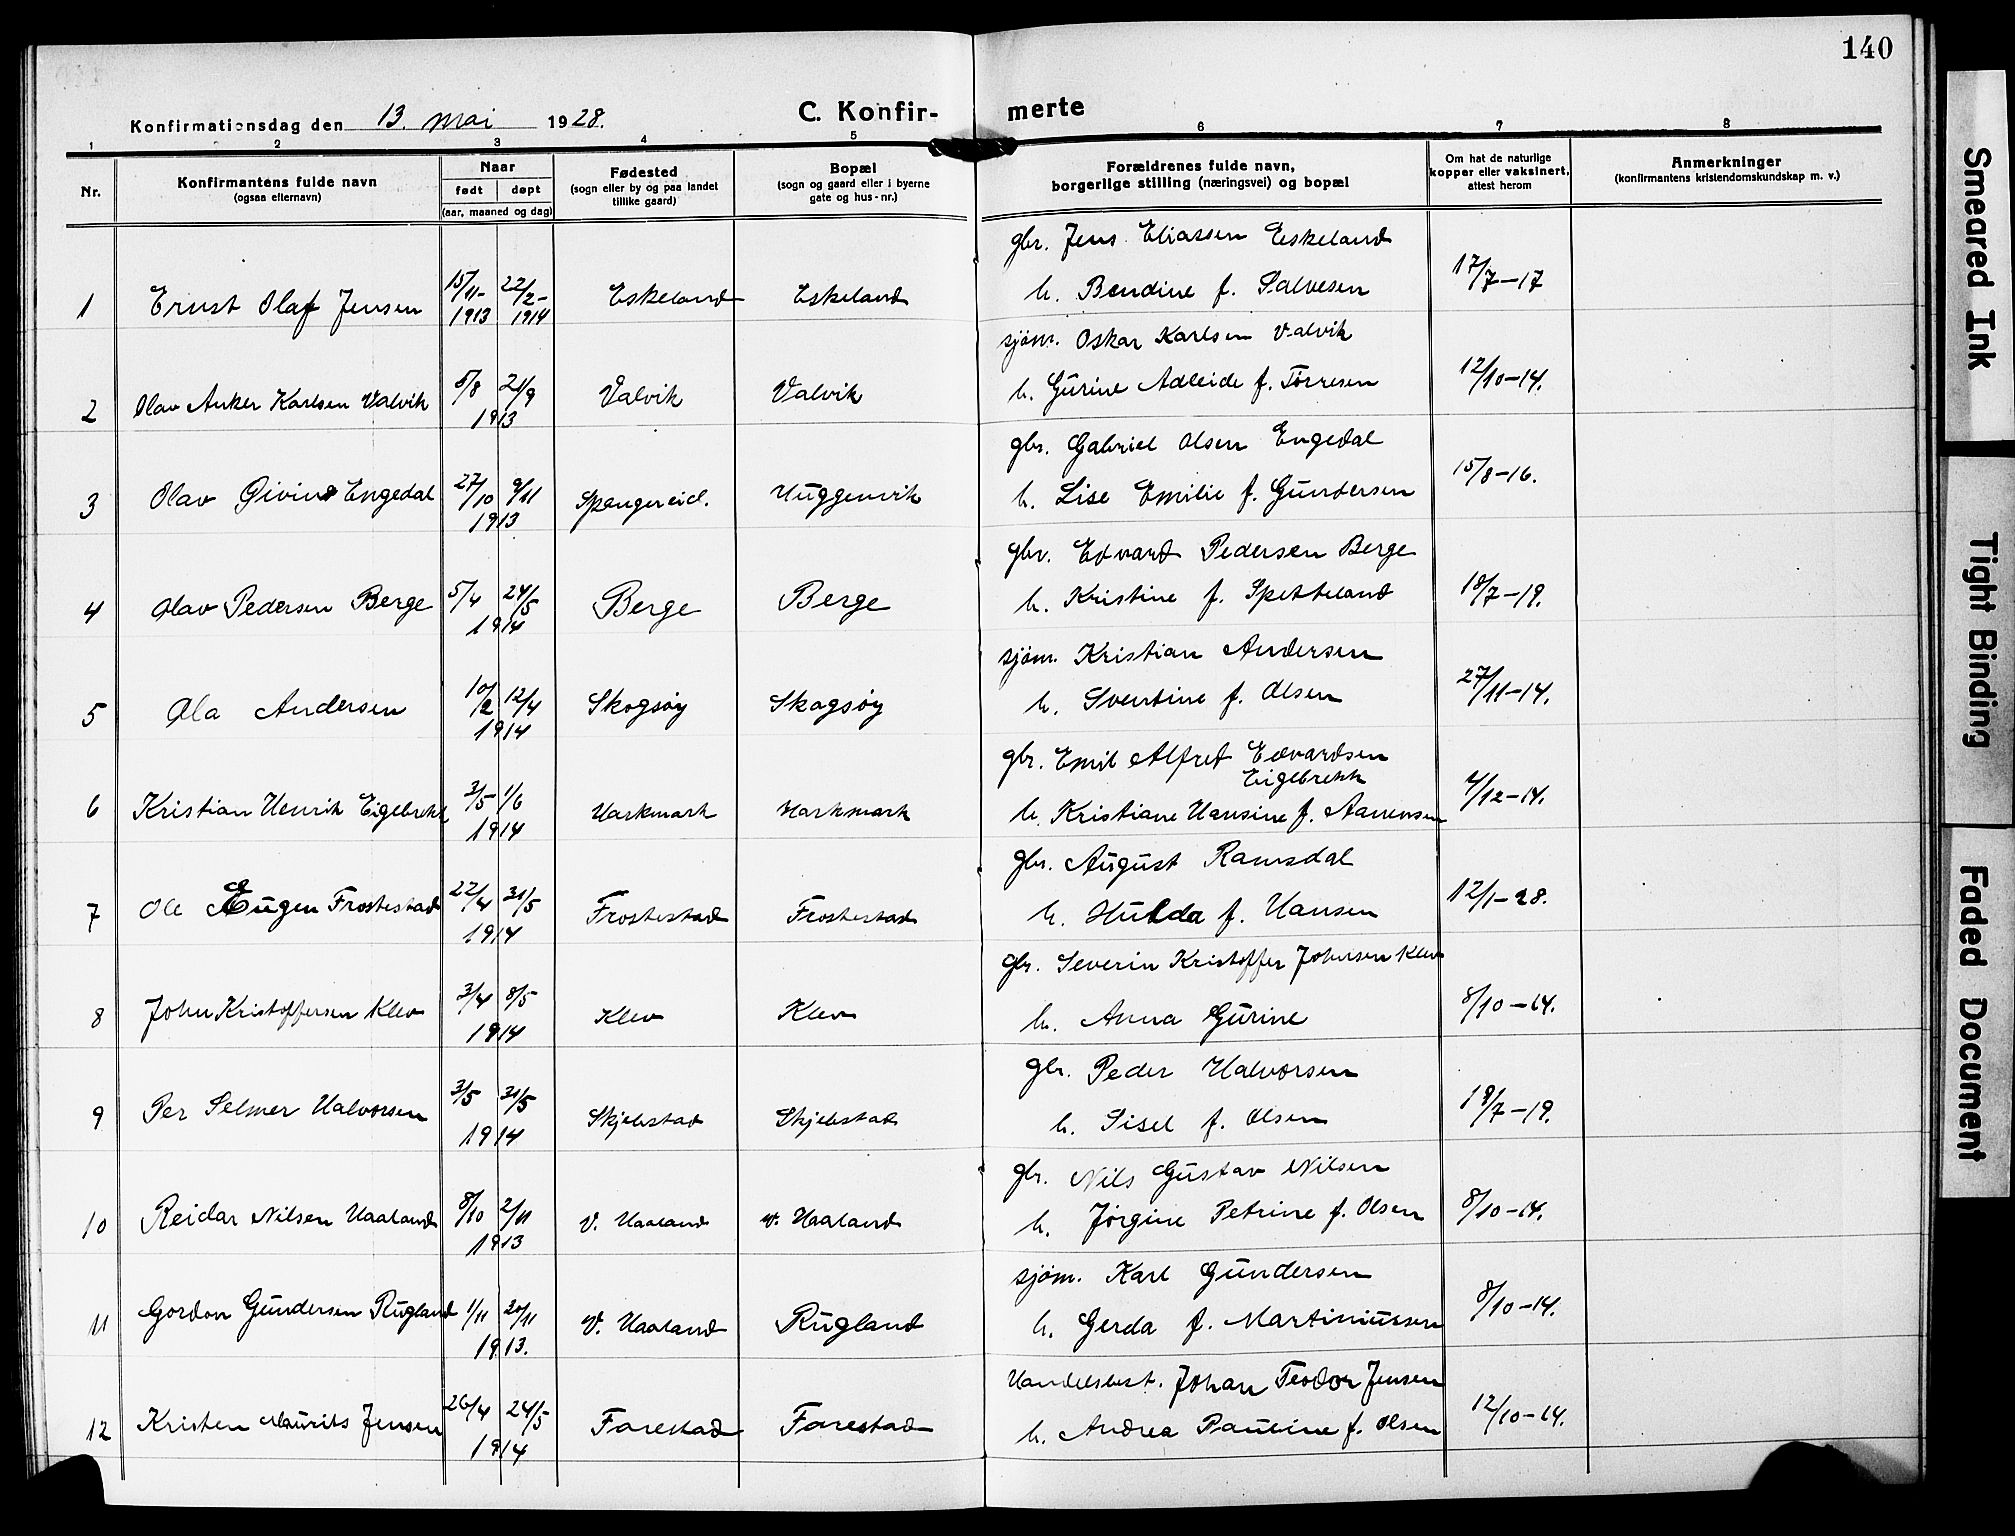 140
Konfirmationsdag den 13. mai 1928.
C. Konfirmerte
1 2 3 4 5 6 7 8
Nr.
Konfirmantens fulde navn
(ogsaa efternavn)
Naar
født døpt
(aar, maaned og dag)
Fødested
(sogn eller by og paa landet
tillike gaard)
Bopæl
(sogn og gaard eller i byerne
gate og hus-nr.)
Forældrenes fulde navn,
borgerlige stilling (næringsvei) og bopæl
Om hat de naturlige
kopper eller vaksinert,
attest herom
Anmerkninger
(konfirmantens kristendomskundskap m. v.)
gbr. Jens Eliassen Eskeland
1 Ernst Olaf Jensen 15/11-1913 22/2-1914 Eskeland Eskeland h. Bendine f. Salvesen 17/7-17
sjøm. Oskar Karlsen Valvik
2 Olav Anker Karlsen Valvik 5/8 21/9 1913 Valvik Valvik h. Gurine Adleide f. Tørresen 12/10-14.
gbr. Gabriel Olsen Engedal
3 Olav Givin Engedal 27/10 9/11 1913 Spangereid. Huggenvik h. Lise Emilie f. Gundersen 15/8-16.
gbr. Edvard Pedersen Berge
4 Olav Pedersen Berge 5/4 24/5 1914 Berge Berge h. Kristine f. Spetteland 18/7-19.
sjøm. Kristian Andersen
5 Ola Andersen 10/2 12/4 1914 Skogsøy Skogsøy h. Sventine f. Olsen 27/11-14.
gbr. Emil Alfred Edvardsen
Eigebrekk
6 Kristian Henrik Eigebrekk 3/5 1/6 1914 Harkmark Harkmark h. Kristiane Hansine f. Aanensen 4/12-14.
gbr. August Ramsdal
7 Ole Eugen Frostestad 22/4 31/5 1914 Frostestad Frostestad h. Hulda f. Hansen 12/1-28.
gbr. Severin Kristoffer Johnsen Klev
8 John Kristoffersen Klev 3/4 8/5 1914 Klev Klev h. Anna Gurine 8/10-14.
gbr. Peder Halvorsen
9 Per Selmer Halvorsen 3/5 31/5 1914 Skjebstad Skjebstad h. Sisel f. Olsen 18/7-19.
gbr. Nils Gustav Nilsen
10 Reidar Nilsen Haaland 8/10 2/11 1913 V. Haaland V. Haaland h. Jørgine Petrine f. Olsen 8/10-14.
sjøm. Karl Gundersen
11 Gordon Gundersen Rugland 1/11 20/11 1913. V. Haaland Rugland h. Gerda f. Martiniussen 8/10-14.
Handelsbest. Johan Teodor Jensen
12 Kristen Maurits Jensen 26/4 24/5 1914 Farestad Farestad h. Andrea Pauline f. Olsen 12/10-14.
Smeared Ink
Tight Binding
Faded Document